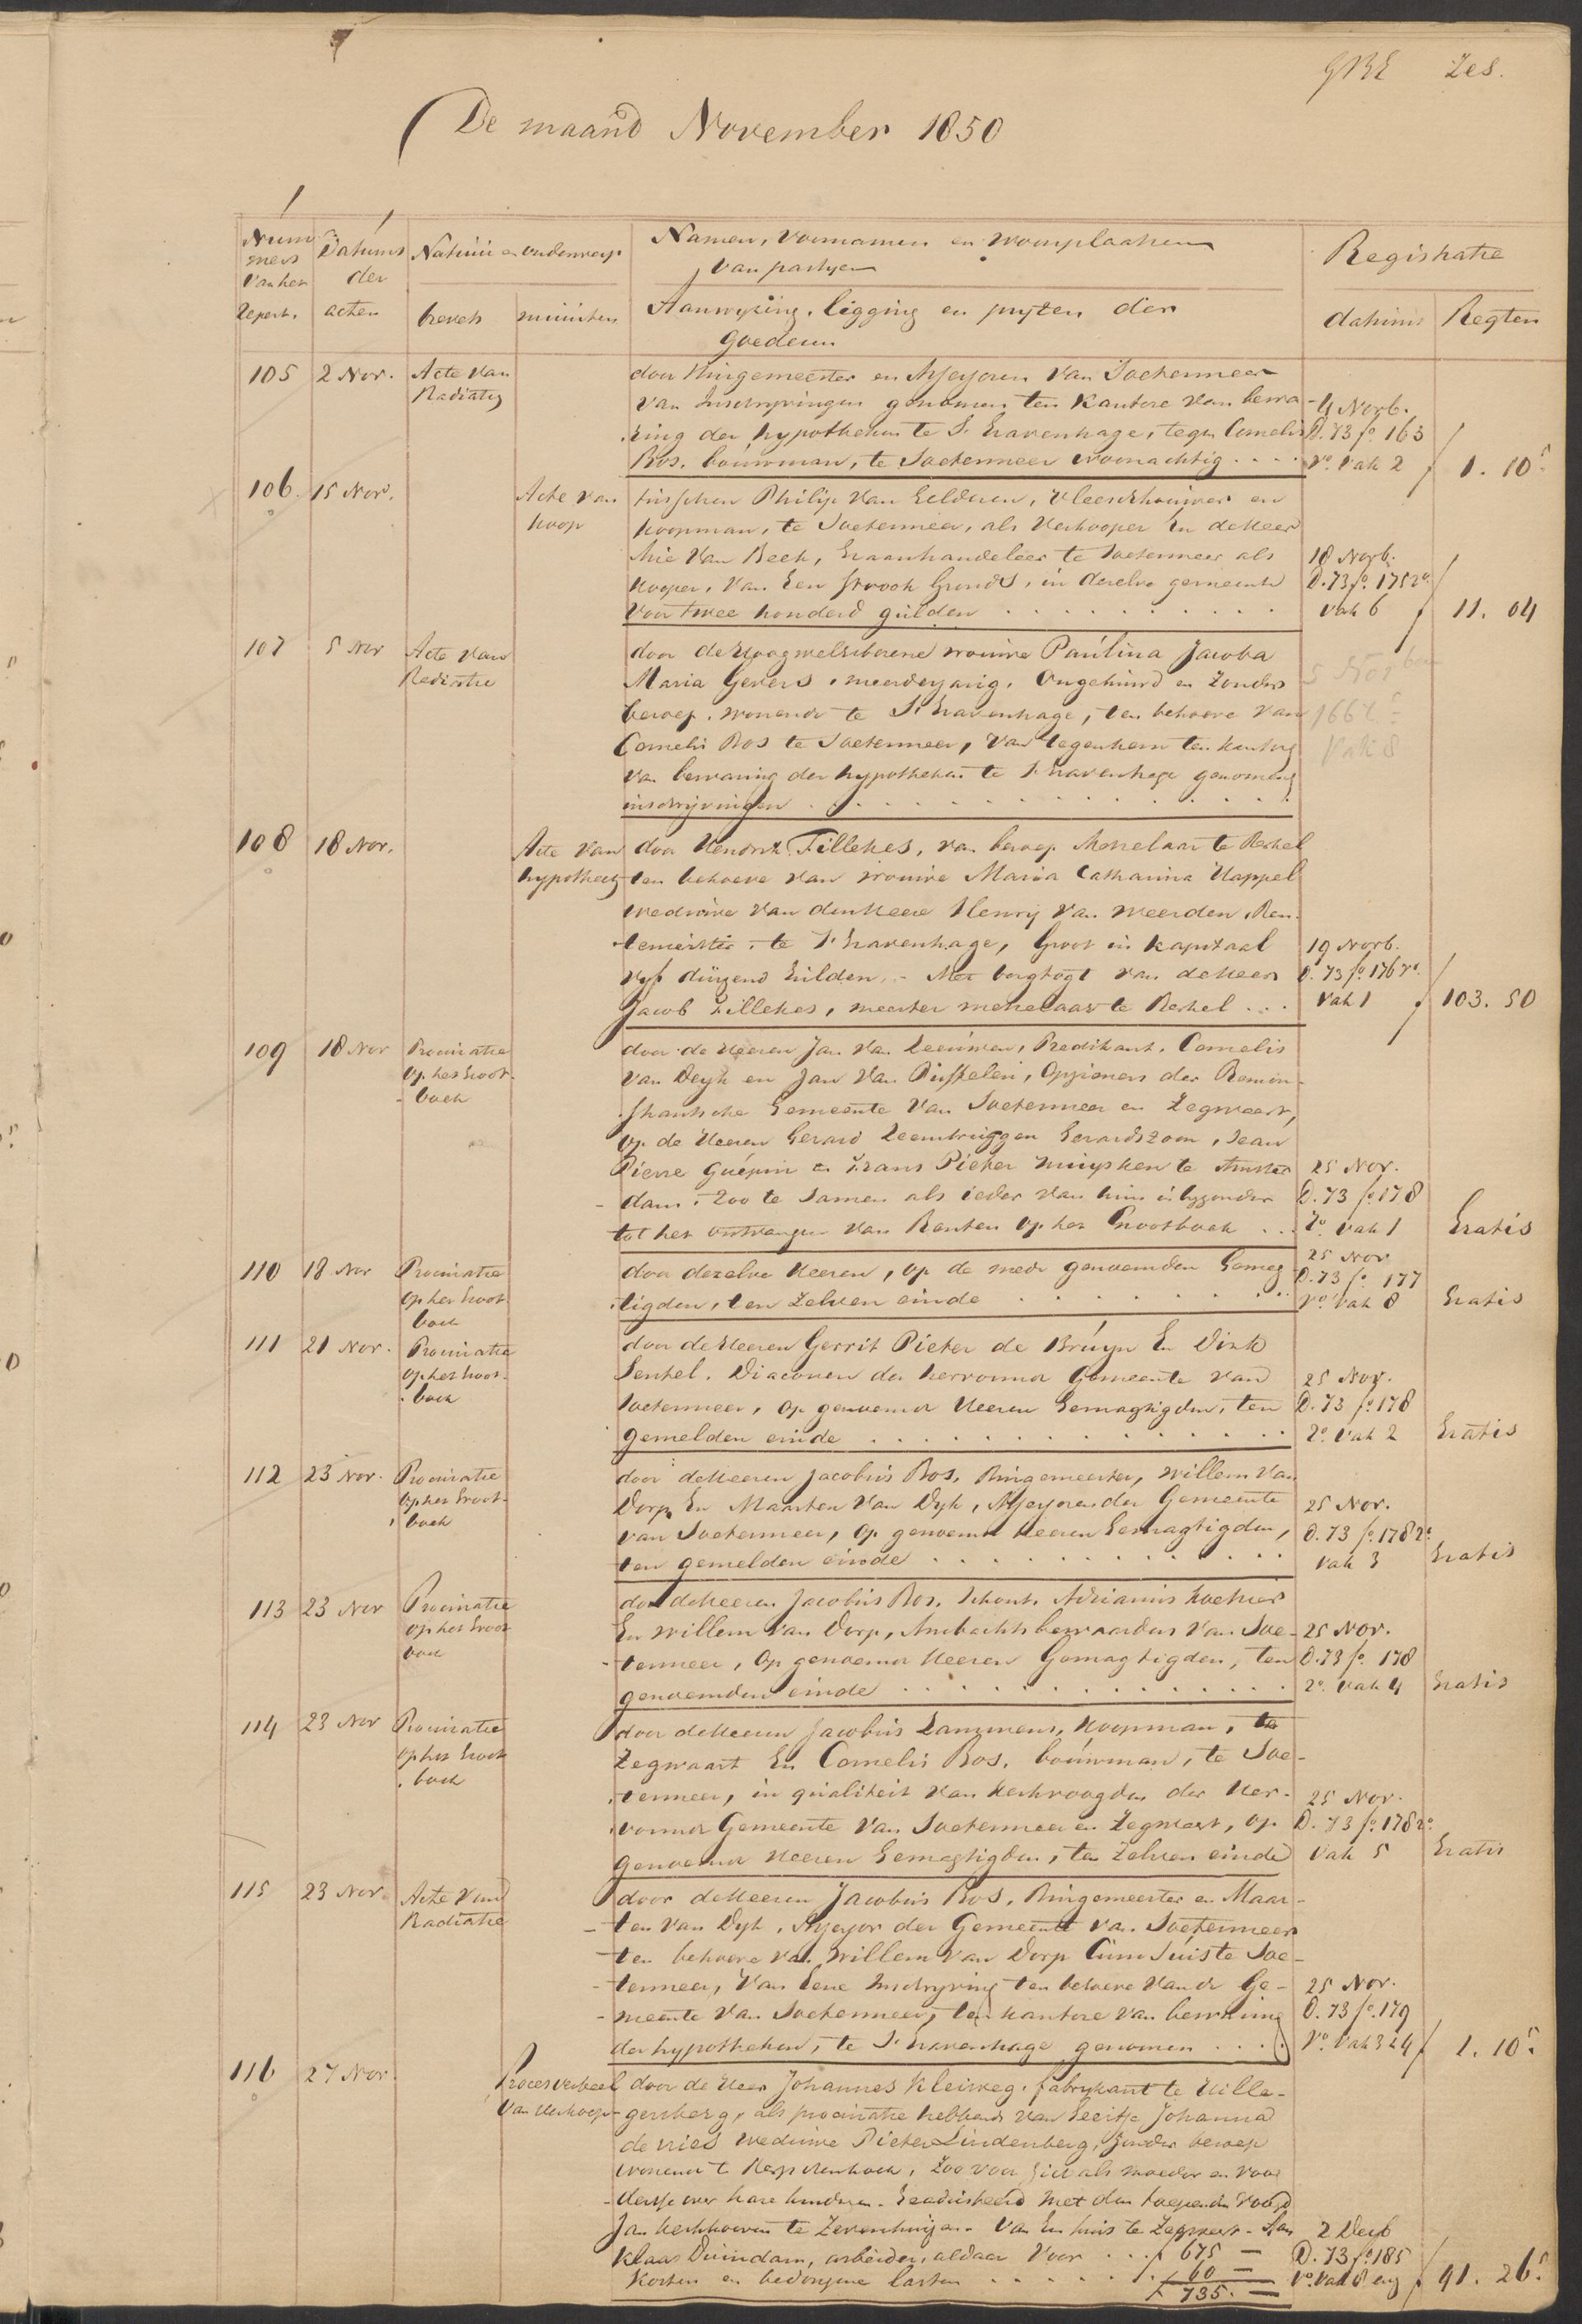 Zes.
De maand November 1850
Num
mers
van het
Repert.
Datums
der
acten
Natuur en onderwerp
brevets
minuten
Namen, voornamen en woonplaatsen
van partyen
Aanwyzing, ligging en pryzen der
goederen
Registratie
datums
Regten
105
2 Nov.
Acte van
Radiatie
door Burgemeester en Assessoren van Soetermeer
van Inschryvingen genomen ten kantore van bewa-
ring der hypotheken te 's Gravenhage, tegen Cornelis
Bos, bouwman, te Soetermeer woonachtig . . . .
4 Novb.
D. 73 fo. 163
vo. vak 2
1. 10 5
106
15 Nov.
Acte van
koop
tusschen Philip van Gelderen, vleeschhouwer en
koopman, te Soetermeer, als Verkooper en de Heer
van Beek, Graanhandelaar te Soetermeer als
kooper, van een strook Gronds, in dezelve gemeente
voor twee honderd gulden . . . .
18 Novb.
D. 73 fo. 175 ro.
vak 6
11. 04
107
5 Nov
Acte van
Radiatie
door de Hoogwelgeborene vrouwe Paulina Jacoba
Maria Gevers, meerderjarig, Ongehuwd en zonder
beroep, wonende te 's Gravenhage, ten behoeve van
Cornelis Bos te Soetermeer, van tegen hem ten kantore
van bewaring der hypotheken te 's Gravenhage genomene
inschryvingen . . . .
5 Novber
166
Vak 8
108
18 Nov.
Acte van
hypotheek
door Hendrik Tillekes, van beroep Metselaar te Berkel
ten behoeve van vrouwe Maria Catharina Kappel
weduwe van den Heere Henry van Weerden, Ren-
teniersche, te 's Gravenhage, Groot in kapitaal
vyf duizend Gulden. - Met borgtogt van de Heer
Jacob Tillekes, meester metselaar te Berkel . . .
19 Novb.
D. 73 fo. 176 ro.
vak 1
103. 50
109
18 Nov
Procuratie
op het Groot-
boek
door de Heeren Jan van Leeuwen, Predikant, Cornelis
van Deyk en Jan van Pusselen, Opzieners der Remon-
strantsche Gemeente van Soetermeer en Zegwaart,
op de Heeren Gerard Leembruggen Gerardszoon, Jean
Pierre Guépin en Frans Pieter Muysken te Amster-
dam, Zoo te samen als ieder van hun in byzonder
tot het ontvangen van Renten op het Grootboek . . .
25 Nov.
D. 73 fo. 178
ro. vak 1
Gratis
110
18 Nov
Procuratie
op het Groot-
boek
door dezelve Heeren, op de mede genoemden Gemag-
tigden, ten zelven einde . . . .
25 Nov
D. 73 fo. 177
vo. vak 8
Gratis
111
21 Nov.
Procuratie
op het Groot-
boek
door de Heeren Gerrit Pieter de Bruyn En Dirk
Senkel, Diaconen der hervormde Gemeente van
Soetermeer, op genoemde Heeren Gemagtigden, ten
gemelden einde . . . .
25 Nov.
D. 73 fo. 178
ro. vak 2
Gratis
112
23 Nov.
Procuratie
op het Groot-
boek
door de Heeren Jacobus Bos, Burgemeester, Willem van
Dorp En Maarten van Dyk, Assessoren der Gemeente
van Soetermeer, op genoemde Heeren Gemagtigden,
ten gemelden einde . . . .
25 Nov.
D. 73 fo. 178 ro.
vak 3
Gratis
113
23 Nov
Procuratie
op het Groot
boek
door de Heeren Jacobus Bos, Schout, Adrianus
En Willem van Dorp, Ambachtsbewaarders van Soe-
termeer, Op genoemde Heeren Gemagtigden, ten
genoemden einde . . . .
25 Nov.
D. 73 fo. 178
ro. vak 4
Gratis
114
23 Nov
Procuratie
op het Groot
boek
door de Heeren Jacobus Lanzmens, Koopman, te
Zegwaart En Cornelis Bos, bouwman, te Soe-
termeer, in qualiteit van Kerkvoogden der Her-
vormde Gemeente van Soetermeer en Zegwaart, op
Genoemde Heeren Gemagtigden, ten zelven einde
25 Nov.
D. 73 fo. 178 ro.
vak 5
Gratis
115
23 Nov.
Acte van
Radiatie
door de Heeren Jacobus Bos, Burgemeester en Maar-
ten van Dyk, Assessor der Gemeente van Soetermeer
ten behoeve van Willem van Dorp Cum Suis te Soe-
termeer, van Eene Inschryving ten behoeve van de Ge-
meente van Soetermeer, ten kantore van bewaring
der hypotheken, te 's Gravenhage genomen . . . .
25 Nov.
D. 73 fo. 179
vo. vak 3 & 4
1. 10 5
116
27 Nov.
Procesverbaal
van Verkoop
door de Heer Johannes Kleiweg, fabrykant te Hille-
gersberg, als procuratie hebbende van Geertje Johanna
de Vries weduwe Pieter Lindenberg, zonder beroep
wonende te, Zoo voor zich als moeder en voog-
desse over hare kinderen. Geadsisteerd met den toezienden Voogd
Jan Kerkhoven te Zevenhuizen. Van Een huis te Zegwaart. Aan
Klaas Duindam, arbeider, aldaar voor . . . f 675 —
Kosten en bedongene lasten . . . . 60 —
f 735. —
2 Decb
D. 73 fo. 185
vo. vak 8 env
41. 26 5